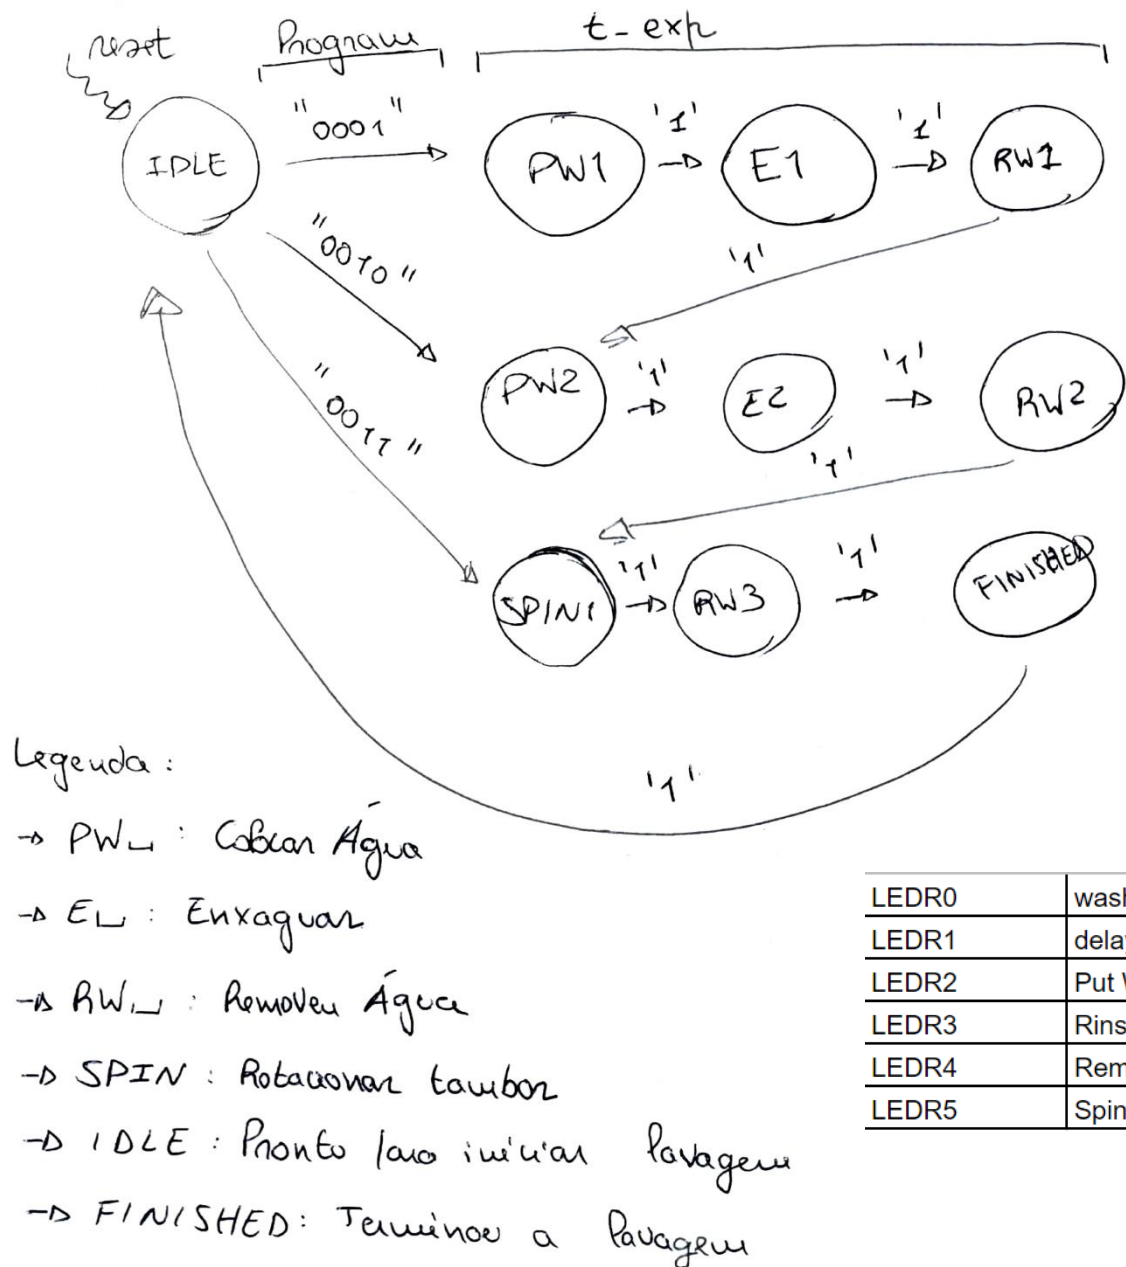 reset Program t_exp
"0001" '1' '1'
IDLE PW1 E1 RW1
"0010" '1'
PW2 '1' E2 '1' RW2
"0011" '1'
SPIN1 '1' RW3 '1' FINISHED
'1'
Legenda:
→ PW␣ : Colocar Água
→ E␣ : Enxaguar
→ RW␣ : Remover Água
→ SPIN : Rotacionar tambor
→ IDLE : Pronto para iniciar lavagem
→ FINISHED: Terminou a lavagem
LEDR0 wash
LEDR1 dela
LEDR2 Put
LEDR3 Rins
LEDR4 Rem
LEDR5 Spin